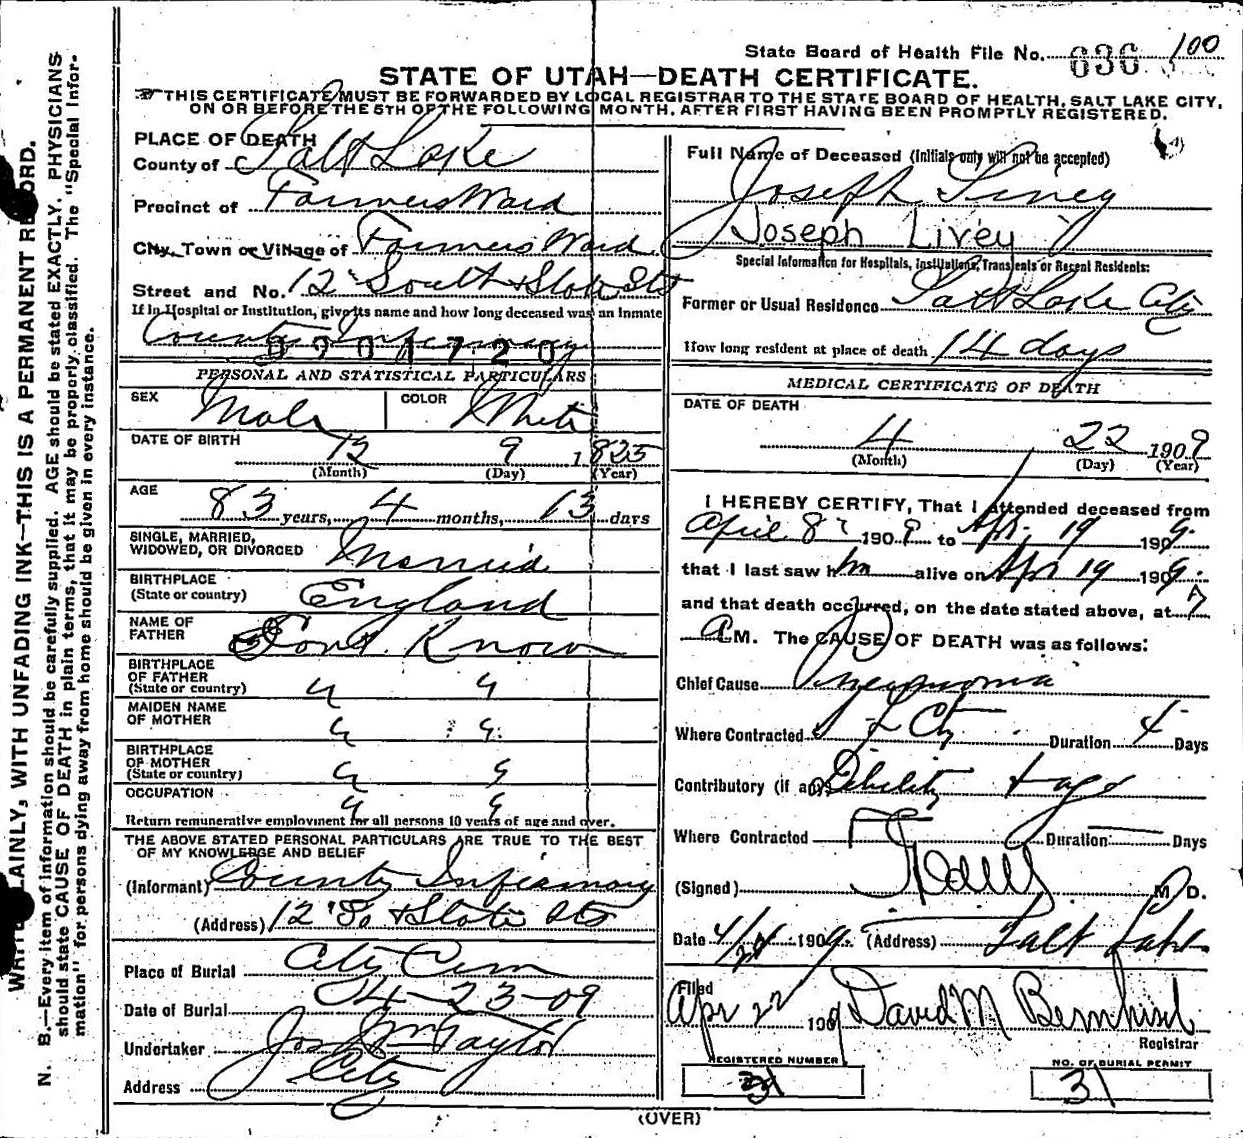 State Board of Health File No. 636 100
STATE OF UTAH—DEATH CERTIFICATE.
THIS CERTIFICATE MUST BE FORWARDED BY LOCAL REGISTRAR TO THE STATE BOARD OF HEALTH, SALT LAKE CITY,
ON OR BEFORE THE 5TH OF THE FOLLOWING MONTH, AFTER FIRST HAVING BEEN PROMPTLY REGISTERED.
PLACE OF DEATH
County of Salt Lake
Precinct of Farmers Ward
City, Town or Village of Farmers Ward
Street and No. 12 South & State Sts
If in Hospital or Institution, give its name and how long deceased was an Inmate
County Infirmary
0901720
PERSONAL AND STATISTICAL PARTICULARS
SEX Male COLOR White
DATE OF BIRTH
12 9 1825
(Month) (Day) (Year)
AGE
83 years, 4 months, 13 days
SINGLE, MARRIED,
WIDOWED, OR DIVORCED Married
BIRTHPLACE
(State or country) England
NAME OF
FATHER Dont Know
BIRTHPLACE
OF FATHER
(State or country) " "
MAIDEN NAME
OF MOTHER " "
BIRTHPLACE
OF MOTHER
(State or country) " "
OCCUPATION " "
Return remunerative employment for all persons 10 years of age and over.
THE ABOVE STATED PERSONAL PARTICULARS ARE TRUE TO THE BEST
OF MY KNOWLEDGE AND BELIEF
(Informant) County Infirmary
(Address) 12 So & State Sts
Place of Burial City Cem
Date of Burial 4-23-09
Undertaker Jos Wm Taylor
Address City
Full Name of Deceased (Initials only will not be accepted)
Joseph Livey
Joseph Livey
Special Information for Hospitals, Institutions, Transients or Recent Residents:
Former or Usual Residence Salt Lake City
How long resident at place of death 14 days
MEDICAL CERTIFICATE OF DEATH
DATE OF DEATH
4 22 1909
(Month) (Day) (Year)
I HEREBY CERTIFY, That I attended deceased from
April 8 1909 to Apr. 19 1909.
that I last saw him alive on Apr 19 1909.
and that death occurred, on the date stated above, at 7
A M. The CAUSE OF DEATH was as follows:
Chief Cause Pneumonia
Where Contracted Duration 4 Days
Contributory (if any) Debility & age
Where Contracted Duration Days
(Signed) M. D.
Date 4/ 1909. (Address) Salt Lake
Filed
Apr 22 1909 David M Bernhisel
Registrar
REGISTERED NUMBER
31
NO. OF BURIAL PERMIT
31
(OVER)
WRITE PLAINLY, WITH UNFADING INK—THIS IS A PERMANENT RECORD.
N. B.—Every item of information should be carefully supplied. AGE should be stated EXACTLY. PHYSICIANS
should state CAUSE OF DEATH in plain terms, that it may be properly classified. The "Special Infor-
mation" for persons dying away from home should be given in every instance.